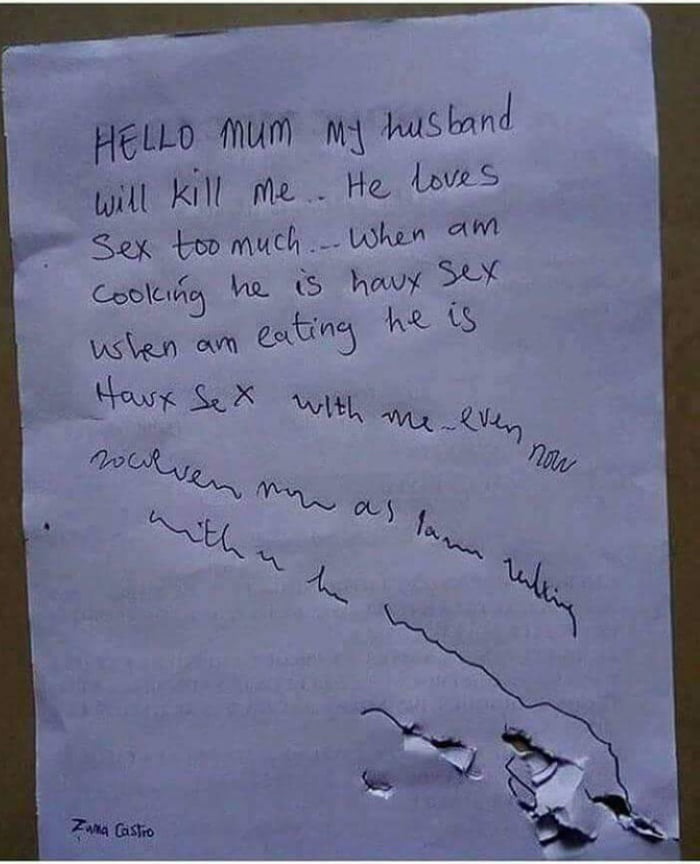 HELLO mum my husband
will kill me.. He loves
Sex too much... When am
Cooking he is havx Sex
when am eating he is
Havx Sex with me even now
now even now as Iam talking
with u he
Zuma Castro